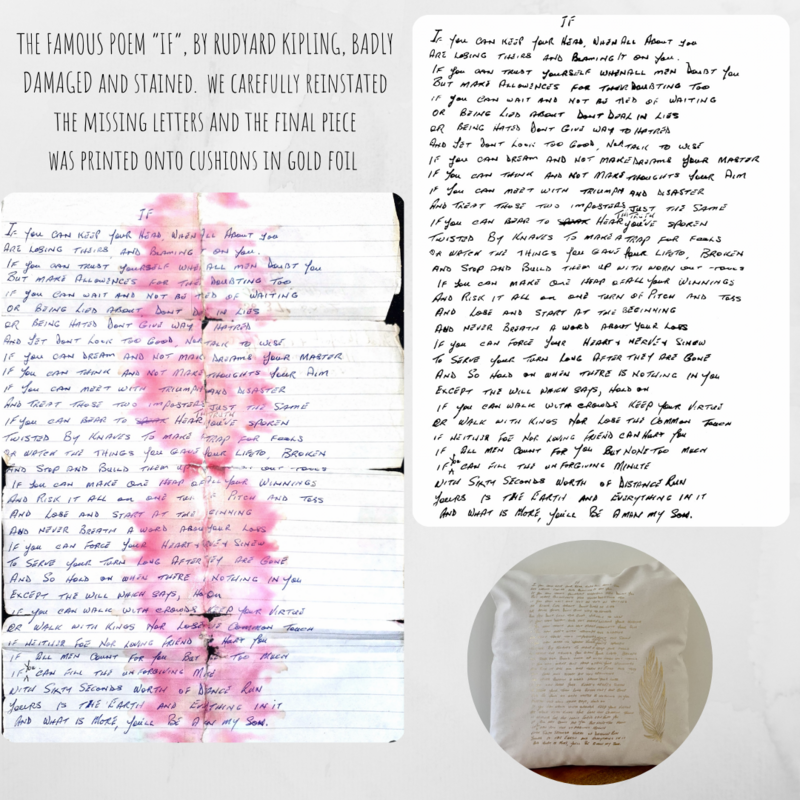 THE FAMOUS POEM "IF", BY RUDYARD KIPLING, BADLY
DAMAGED AND STAINED. WE CAREFULLY REINSTATED
THE MISSING LETTERS AND THE FINAL PIECE
WAS PRINTED ONTO CUSHIONS IN GOLD FOIL
IF
IF YOU CAN KEEP YOUR HEAD, WHEN ALL ABOUT YOU
ARE LOSING THEIRS AND BLAMING ON YOU.
IF YOU CAN TRUST YOURSELF WHE ALL MEN DOUBT YOU
BUT MAKE ALLOWENCES FOR THE DOUBTING TOO
IF YOU CAN WAIT AND NOT BE TIED OF WAITING
OR BEING LIED ABOUT DONT D IN LIES
OR BEING HATED DONT GIVE WAY HATRED
AND YET DONT LOOK TOO GOOD, NOR TALK TO WISE
IF YOU CAN DREAM AND NOT MAK DREAMS YOUR MASTER
IF YOU CAN THINK AND NOT MAKE THOUGHTS YOUR AIM
IF YOU CAN MEET WITH TRIUMPH AND DISASTER
AND TREAT THOSE TWO IMPOSTERS JUST THE SAME
IF YOU CAN BEAR TO HEAR THE TRUTH YOU'VE SPOKEN
TWISTED BY KNAVES TO MAKE TRAP FOR FOOLS
OR WATCH THE THINGS YOU GAVE YOUR LIFETO, BROKEN
AND STOP AND BUILD THEM U OUT - TOOLS
IF YOU CAN MAKE ONE HEAP OF ALL YOUR WINNINGS
AND RISK IT ALL ON ONE TU F PITCH AND TOSS
AND LOSE AND START AT THE GINNING
AND NEVER BREATH A WORD ABOU YOUR LOSS
IF YOU CAN FORCE YOUR HEART + NERVE + SINEW
TO SERVE YOUR TURN LONG AFTER EY ARE GONE
AND SO HOLD ON WHEN THERE NOTHING IN YOU
EXCEPT THE WILL WHICH SAYS, HO ON
IF YOU CAN WALK WITH CROWDS KEEP YOUR VIRTUE
OR WALK WITH KINGS NOR LOSE E COMMON TOUCH
IF NEITHER FOE NOR LOVING FRIEND HURT YOU
IF ALL MEN COUNT FOR YOU BUT TOO MUCH
IF YOU CAN FILL THE UNFORGIVING M TE
WITH SIXTY SECONDS WORTH OF D ANCE RUN
YOURS IS THE EARTH AND E YTHING IN IT
AND WHAT IS MORE, YOU'LL BE A MAN MY SON.
IF
IF YOU CAN KEEP YOUR HEAD, WHEN ALL ABOUT YOU
ARE LOSING THEIRS AND BLAMING IT ON YOU.
IF YOU CAN TRUST YOURSELF WHEN ALL MEN DOUBT YOU
BUT MAKE ALLOWENCES FOR THEIR DOUBTING TOO
IF YOU CAN WAIT AND NOT BE TIED OF WAITING
OR BEING LIED ABOUT DONT DEAL IN LIES
OR BEING HATED DONT GIVE WAY TO HATRED
AND YET DONT LOOK TOO GOOD, NOR TALK TO WISE
IF YOU CAN DREAM AND NOT MAKE DREAMS YOUR MASTER
IF YOU CAN THINK AND NOT MAKE THOUGHTS YOUR AIM
IF YOU CAN MEET WITH TRIUMPH AND DISASTER
AND TREAT THOSE TWO IMPOSTERS JUST THE SAME
IF YOU CAN BEAR TO HEAR THE TRUTH YOU'VE SPOKEN
TWISTED BY KNAVES TO MAKE A TRAP FOR FOOLS
OR WATCH THE THINGS YOU GAVE YOUR LIFETO, BROKEN
AND STOP AND BUILD THEM UP WITH WORN OUT - TOOLS
IF YOU CAN MAKE ONE HEAP OF ALL YOUR WINNINGS
AND RISK IT ALL ON ONE TURN OF PITCH AND TOSS
AND LOSE AND START AT THE BEGINNING
AND NEVER BREATH A WORD ABOUT YOUR LOSS
IF YOU CAN FORCE YOUR HEART + NERVE + SINEW
TO SERVE YOUR TURN LONG AFTER THEY ARE GONE
AND SO HOLD ON WHEN THERE IS NOTHING IN YOU
EXCEPT THE WILL WHICH SAYS, HOLD ON
IF YOU CAN WALK WITH CROWDS KEEP YOUR VIRTUE
OR WALK WITH KINGS NOR LOSE THE COMMON TOUCH
IF NEITHER FOE NOR LOVING FRIEND CAN HURT YOU
IF ALL MEN COUNT FOR YOU BUT NONE TOO MUCH
IF YOU CAN FILL THE UNFORGIVING MINUTE
WITH SIXTY SECONDS WORTH OF DISTANCE RUN
YOURS IS THE EARTH AND EVERYTHING IN IT
AND WHAT IS MORE, YOU'LL BE A MAN MY SON.